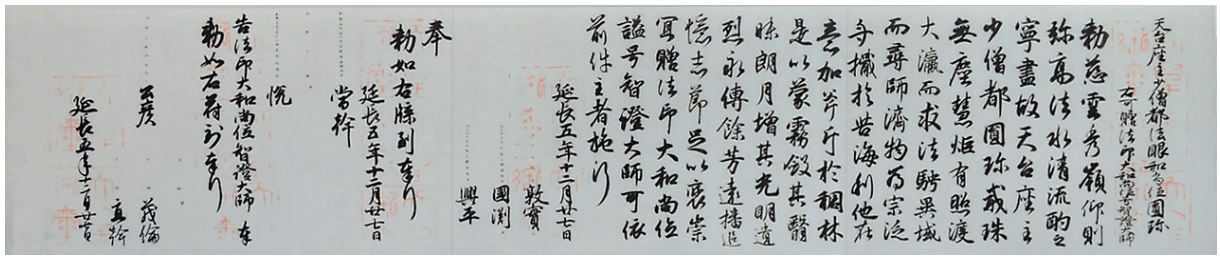 天台座主少僧都法眼和尚位圓珍
右可贈法印大和尚位号智證大師
勅慈雲秀嶺仰則
弥高法水清流酌之
寧盡故天台座主
少僧都圓珍戒珠
無塵慧炬有照渡
大瀛而求法騁異域
而尋師濟物為宗泛
舟檝於苦海利他在
意加斧斤於稠林
是以蒙霧斂其翳
昧朗月增其光明遺
烈永傳餘芳遠播追
憶志節足以褒崇
冝贈法印大和尚位
謚号智證大師可依
前件主者施行
延長五年十二月廿七日
敦實
國淵
興平
奉
勅如右牒到奉行
延長五年十二月廿七日
當幹
悦
告法印大和尚位智證大師奉
勅如右符到奉行
茂倫
公廣
直幹
延長五年十二月廿七日